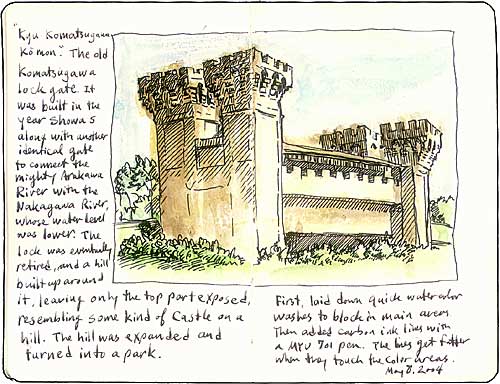 "Kyu Komatsugawa
Kōmon". The old
Komatsugawa
lock gate. It
was built in the
year Showa 5
along with another
identical gate
to connect the
mighty Arakawa
River with the
Nakagawa River,
whose water level
was lower. The
lock was eventually
retired, and a hill
built up around
it, leaving only the top part exposed,
resembling some kind of Castle on a
hill. The hill was expanded and
turned into a park.
First, laid down quick watercolor
washes to block in main areas.
Then added carbon ink lines with
a MYU 701 pen. The lines get fatter
when they touch the color areas.
May 8, 2004